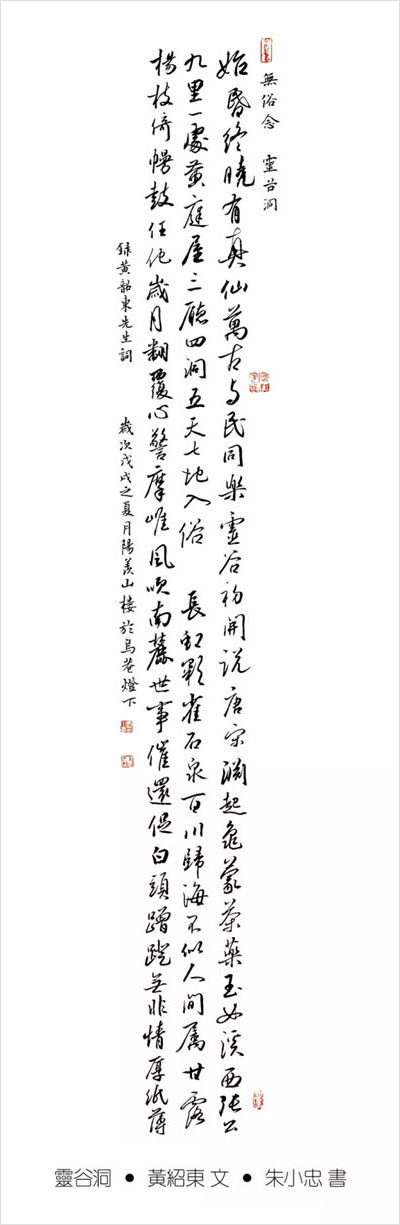 無俗念 靈谷洞
始昏終曉有真仙萬古与民同樂靈谷初開說唐宋淵起龜蒙茶藥玉女溪西張公
九里一處黃庭屋三廳四洞五天七地入俗 長虹雀石泉百川歸海不似人間屬甘露
楊枝倚幔鼓任他歲月翻覆心警摩崖風吹南麓世事催還促白頭蹭蹬無非情厚紙薄
錄黃韶東先生詞 歲次戊戌之夏月陽羨山樓於烏菴燈下
靈谷洞 ● 黃紹東 文 ● 朱小忠 書